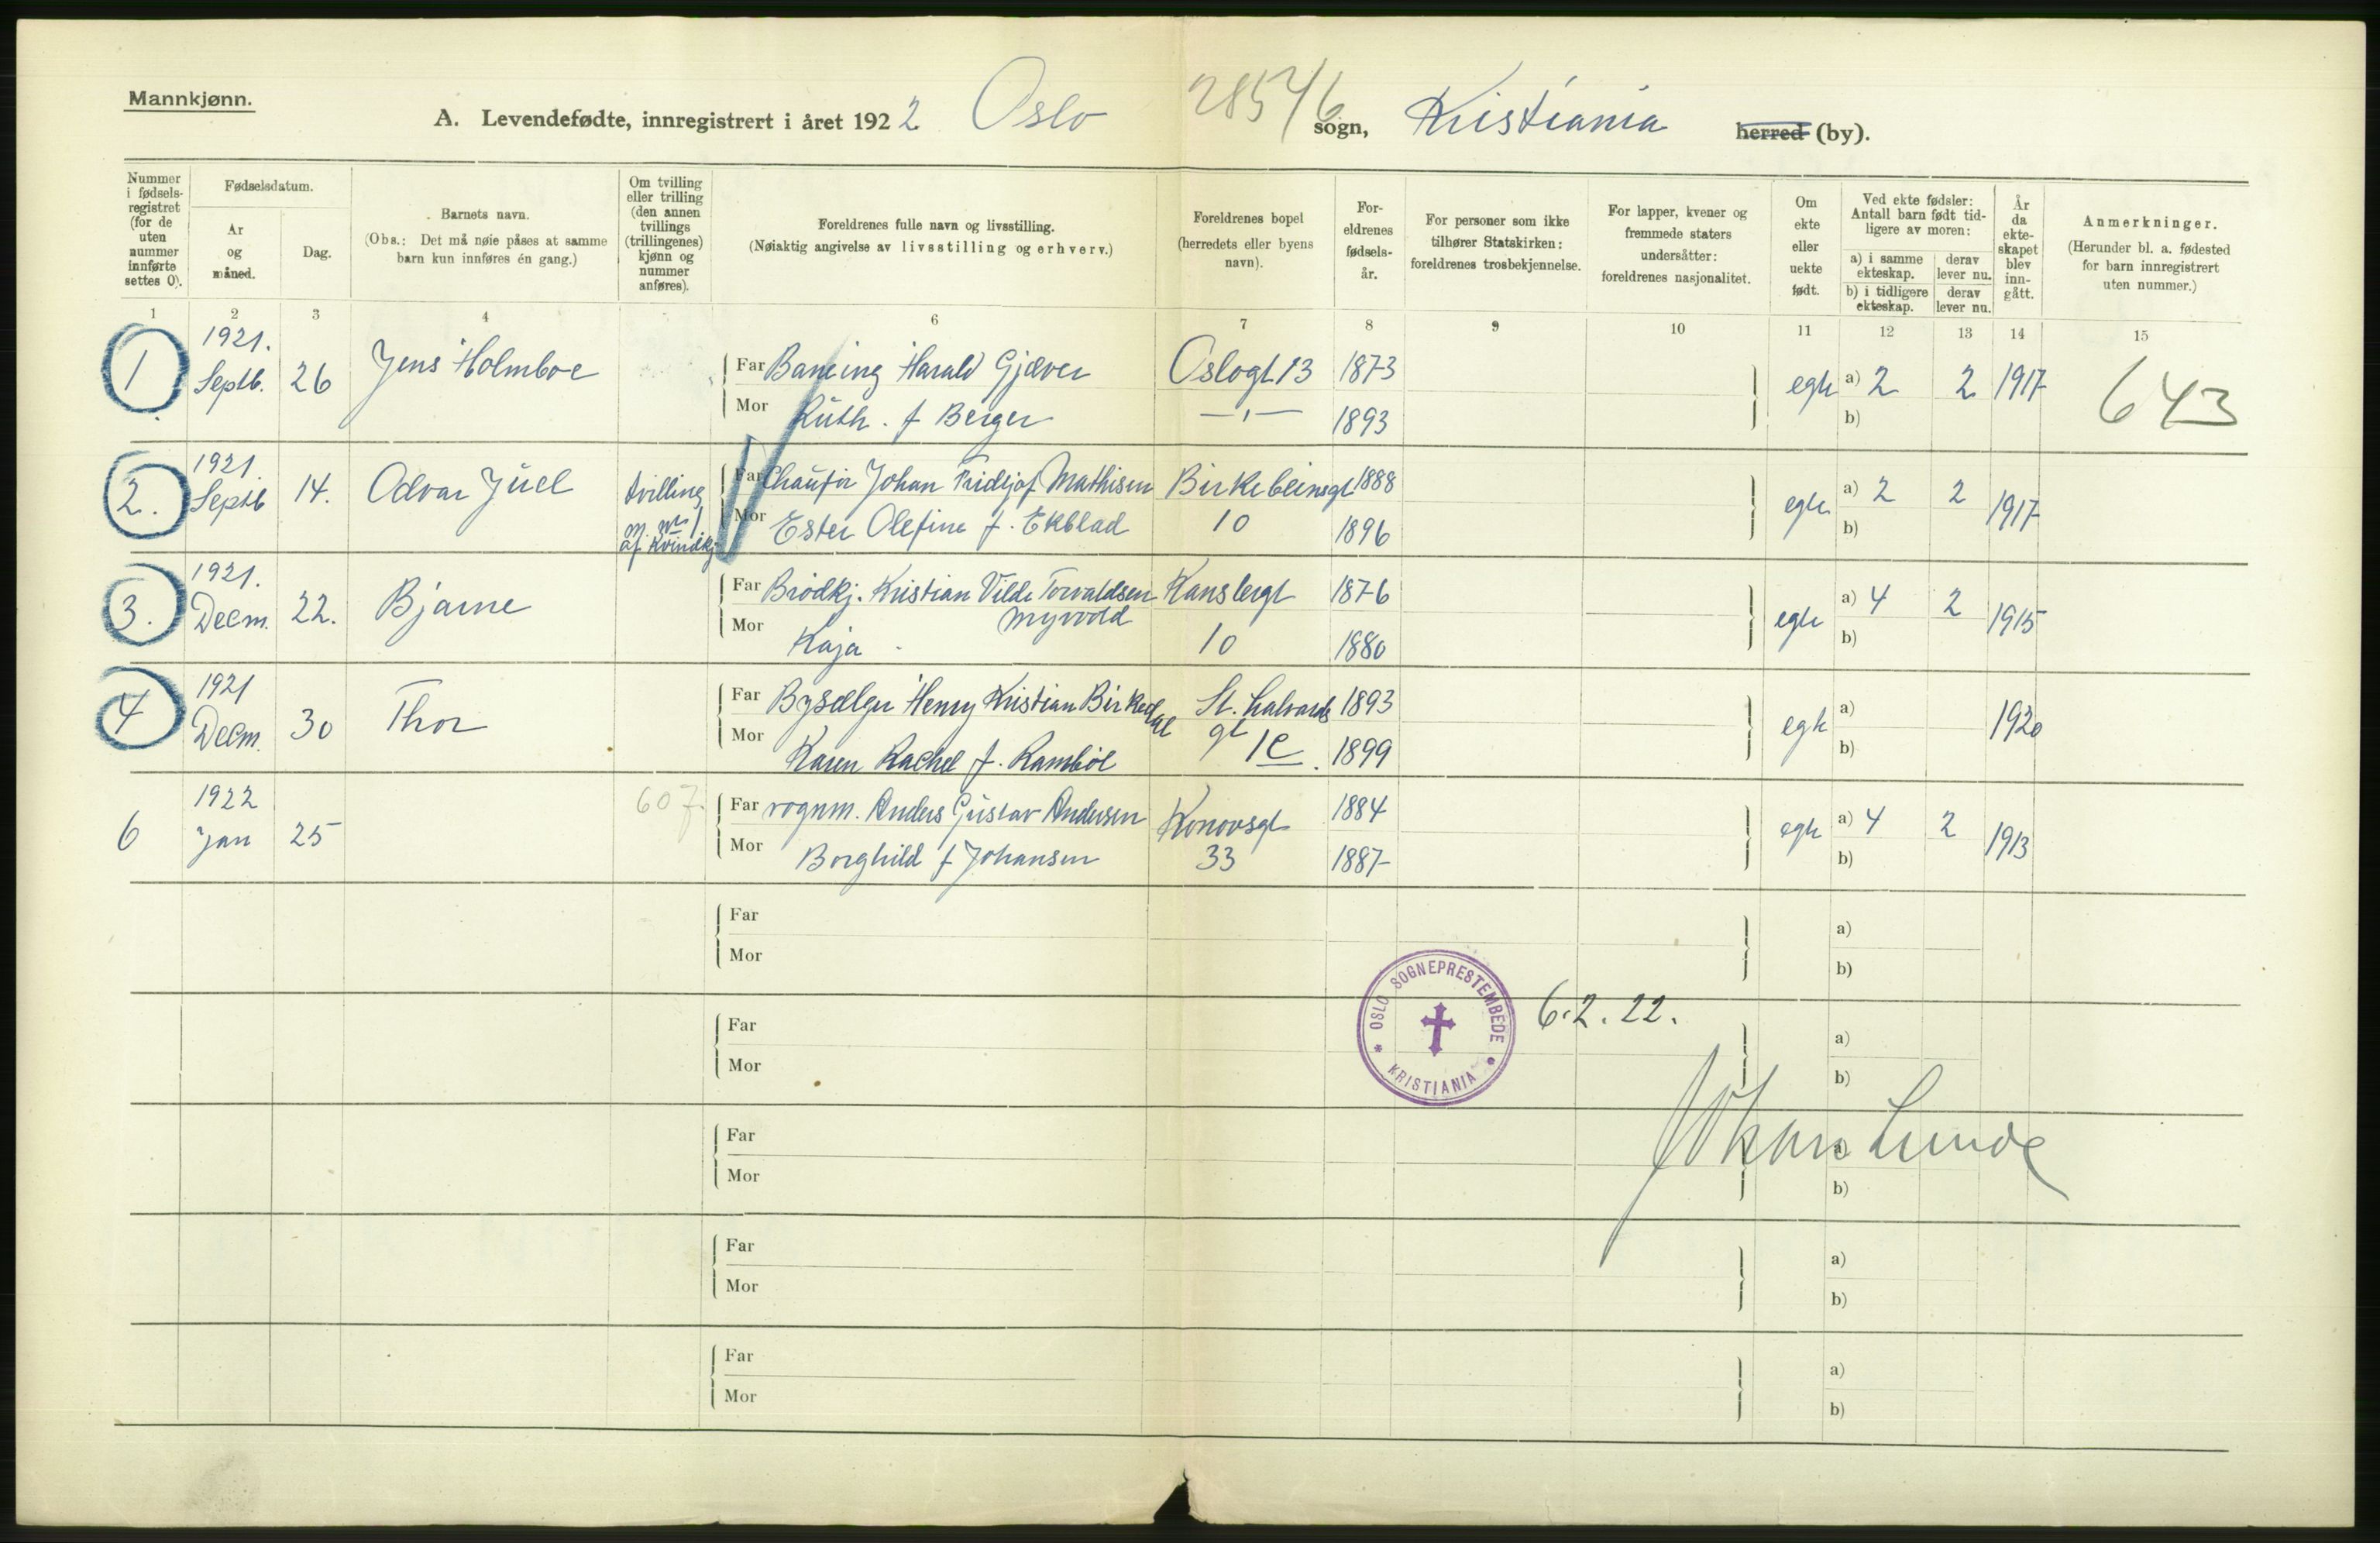 Mannkjønn.
A. Levendefødte, innregistrert i året 1922 Oslo sogn, Kristiania herred (by).
2854/6
Nummer i fødsels-registret (for de uten nummer innførte settes 0).
Fødselsdatum.
År og måned.
Dag.
Barnets navn.
(Obs.: Det må nøie påses at samme barn kun innføres én gang.)
Om tvilling eller trilling (den annen tvillings (trillingenes) kjønn og nummer anføres).
Foreldrenes fulle navn og livsstilling.
(Nøiaktig angivelse av livsstilling og erhverv.)
Foreldrenes bopel (herredets eller byens navn).
For-eldrenes fødsels-år.
For personer som ikke tilhører Statskirken: foreldrenes trosbekjennelse.
For lapper, kvener og fremmede staters undersåtter: foreldrenes nasjonalitet.
Om ekte eller uekte født.
Ved ekte fødsler: Antall barn født tid-ligere av moren:
a) i samme ekteskap.
derav lever nu.
b) i tidligere ekteskap.
derav lever nu.
År da ekte-skapet blev inn-gått.
Anmerkninger.
(Herunder bl. a. fødested for barn innregistrert uten nummer.)
1 2 3 4 6 7 8 9 10 11 12 13 14 15
1 1921. Septb. 26 Jens Holmboe Far Harald Gjæver Oslogt 13 1873 egte a) 2 2 1917 643
Mor Ruth. f Berger —"— 1893 b)
2. 1921. Septb 14. Odvar Juel tvilling m. nr 1. af kvindkj. Far Chaufør Johan Fridtjof Mathisen Birkebeinsgt 1888 egte a) 2 2 1917
Mor Ester Olefine f. Ekblad 10 1896 b)
3. 1921. Decm. 22. Bjarne Far Brødkj. Kristian Vilde Torvaldsen Myrvold Kanslergt 1876 egte a) 4 2 1915
Mor Kaja 10 1880 b)
4 1921 Decm. 30 Thor Far Bysælger Henry Kristian St. Halvards 1893 egte a) 1920
Mor Karen Rachel f. gt 1c. 1899 b)
6 1922 Jan 25 607. Far vognm. Anders Gustav Andersen Konowsgt 1884 egte a) 4 2 1913
Mor Borghild f Johansen 33 1887 b)
Far a)
Mor b)
OSLO SOGNEPRESTEMBEDE * KRISTIANIA *
6.2.22.
Far a)
Mor b)
Johan Lunde
Far a)
Mor b)
Far a)
Mor b)
Far a)
Mor b)